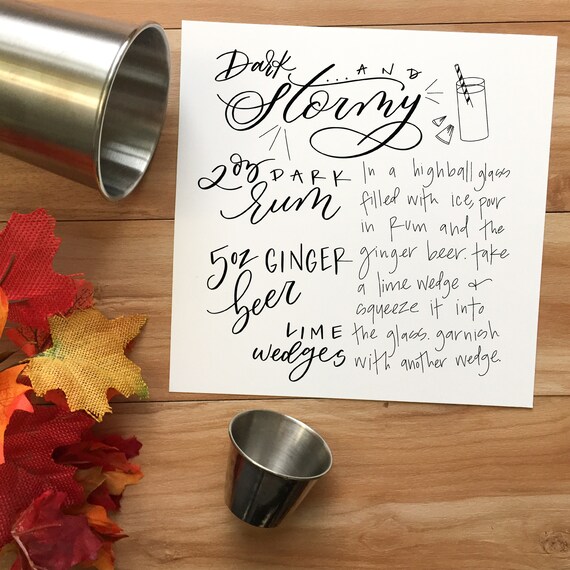 Dark ... AND
Stormy
2 oz DARK
rum
5 oz GINGER
beer
LIME
wedges
In a highball glass
filled with ice, pour
in Rum and the
ginger beer. take
a lime wedge &
squeeze it into
the glass. garnish
with another wedge.